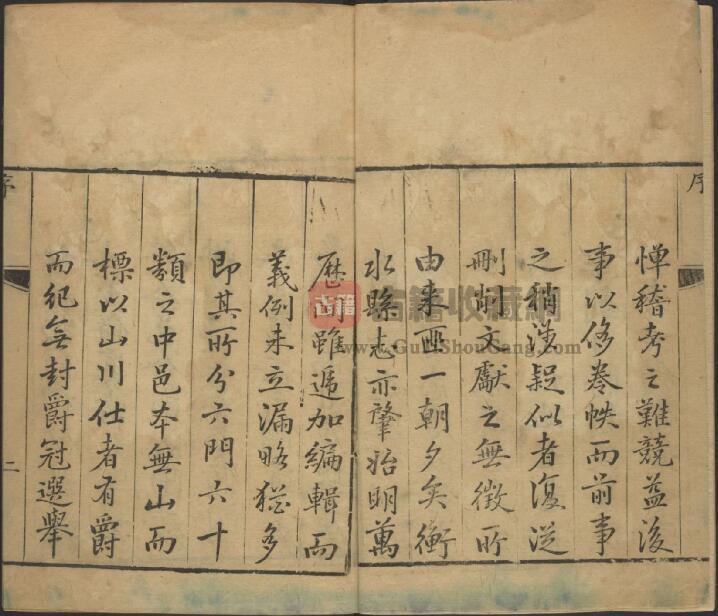 序
憚稽考之難競益後
事以侈卷帙而前事
之稍涉疑似者復從
刪削文獻之無徵所
由来匪一朝夕矣衡
水縣志亦肇始明萬
歷間雖遞加編輯而
義例未立漏略猶多
即其所分六門六十
類之中邑本無山而
標以山川仕者有爵
而紀無封爵冠選舉
序
二
古籍
古籍收藏網
www.GuJiShouCang.com